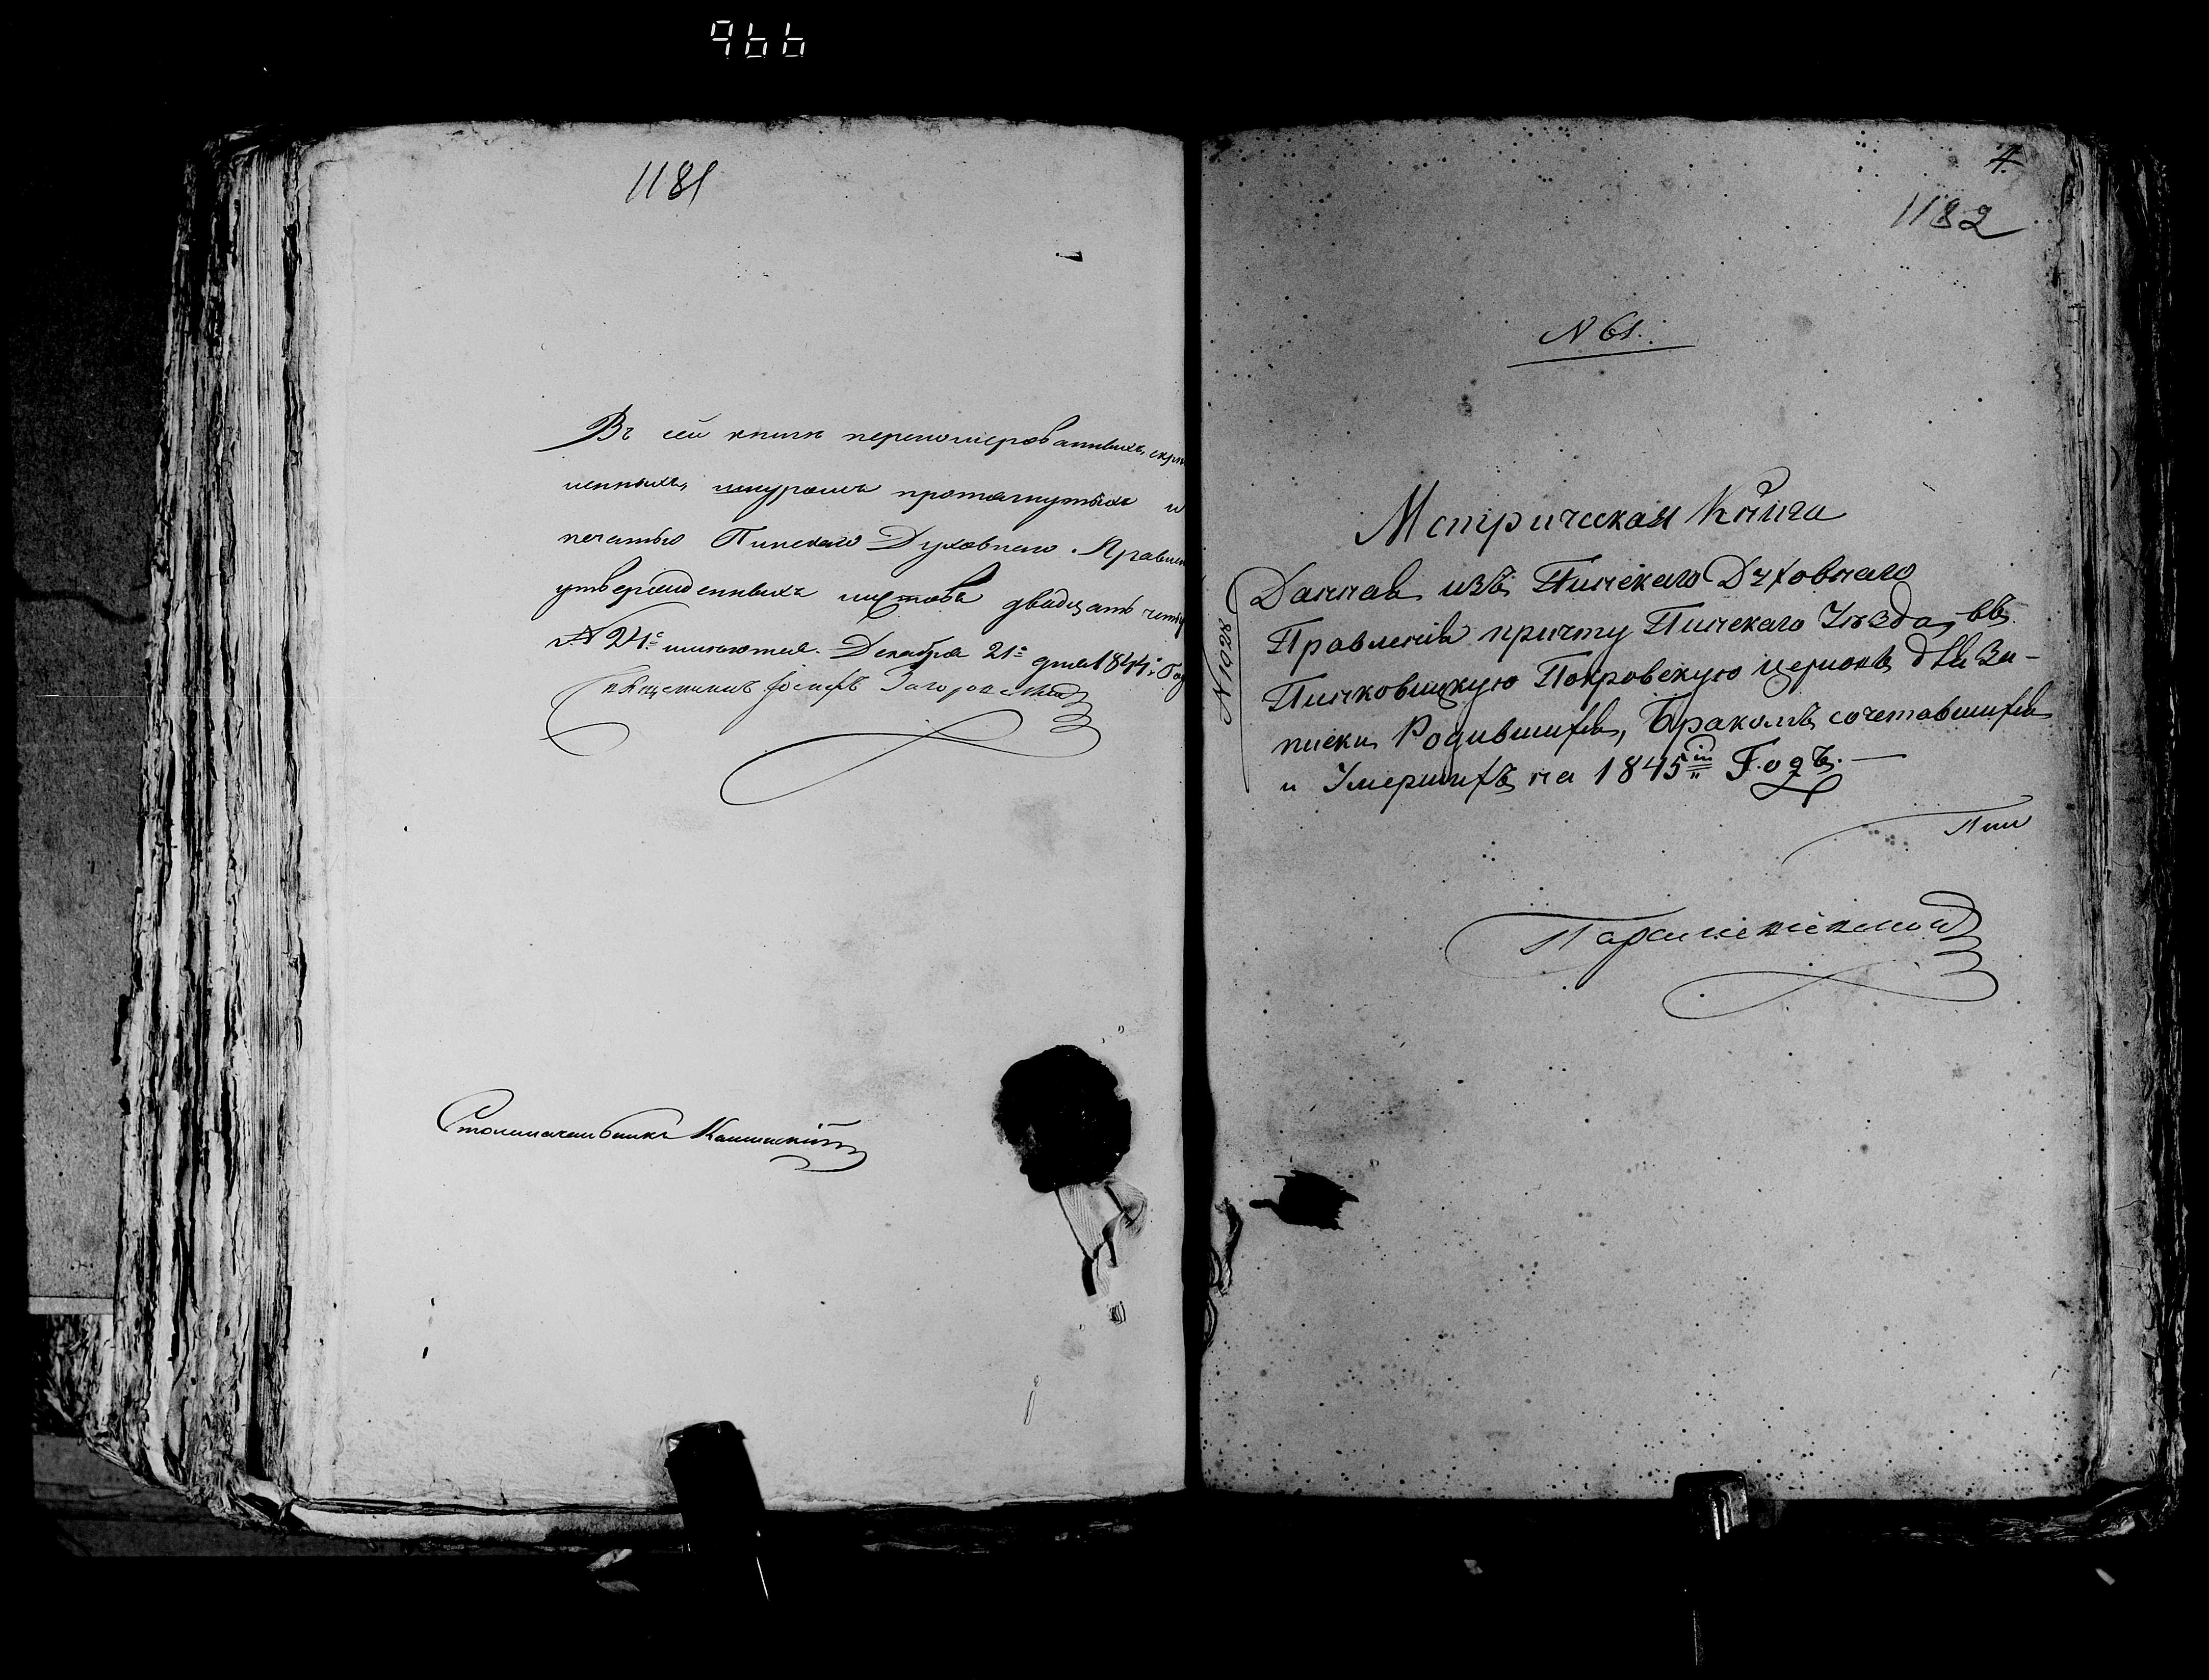 966
1181
Въ сей книгѣ переномерованныхъ, скрѣ
пленныхъ, шнуромъ протянутыхъ и
печатью Пинскаго Духовнаго Правлен
утвержденныхъ листовъ двадцать четыр
№ 24. имѣются. Декабря 21. дня 1844. Год
Священникъ Іосифъ Загоровскій
Столоначальникъ
4.
1182
N 61.
Метрическая Книга
Данная изъ Пинскаго Духовнаго
Правленія причту Пинскаго Уѣзда, въ
Пинковицкую Покровскую церковь для За-
писки Родившихся, Бракомъ сочетавшихся
и Умершихъ на 1845й Годъ.
N 1928